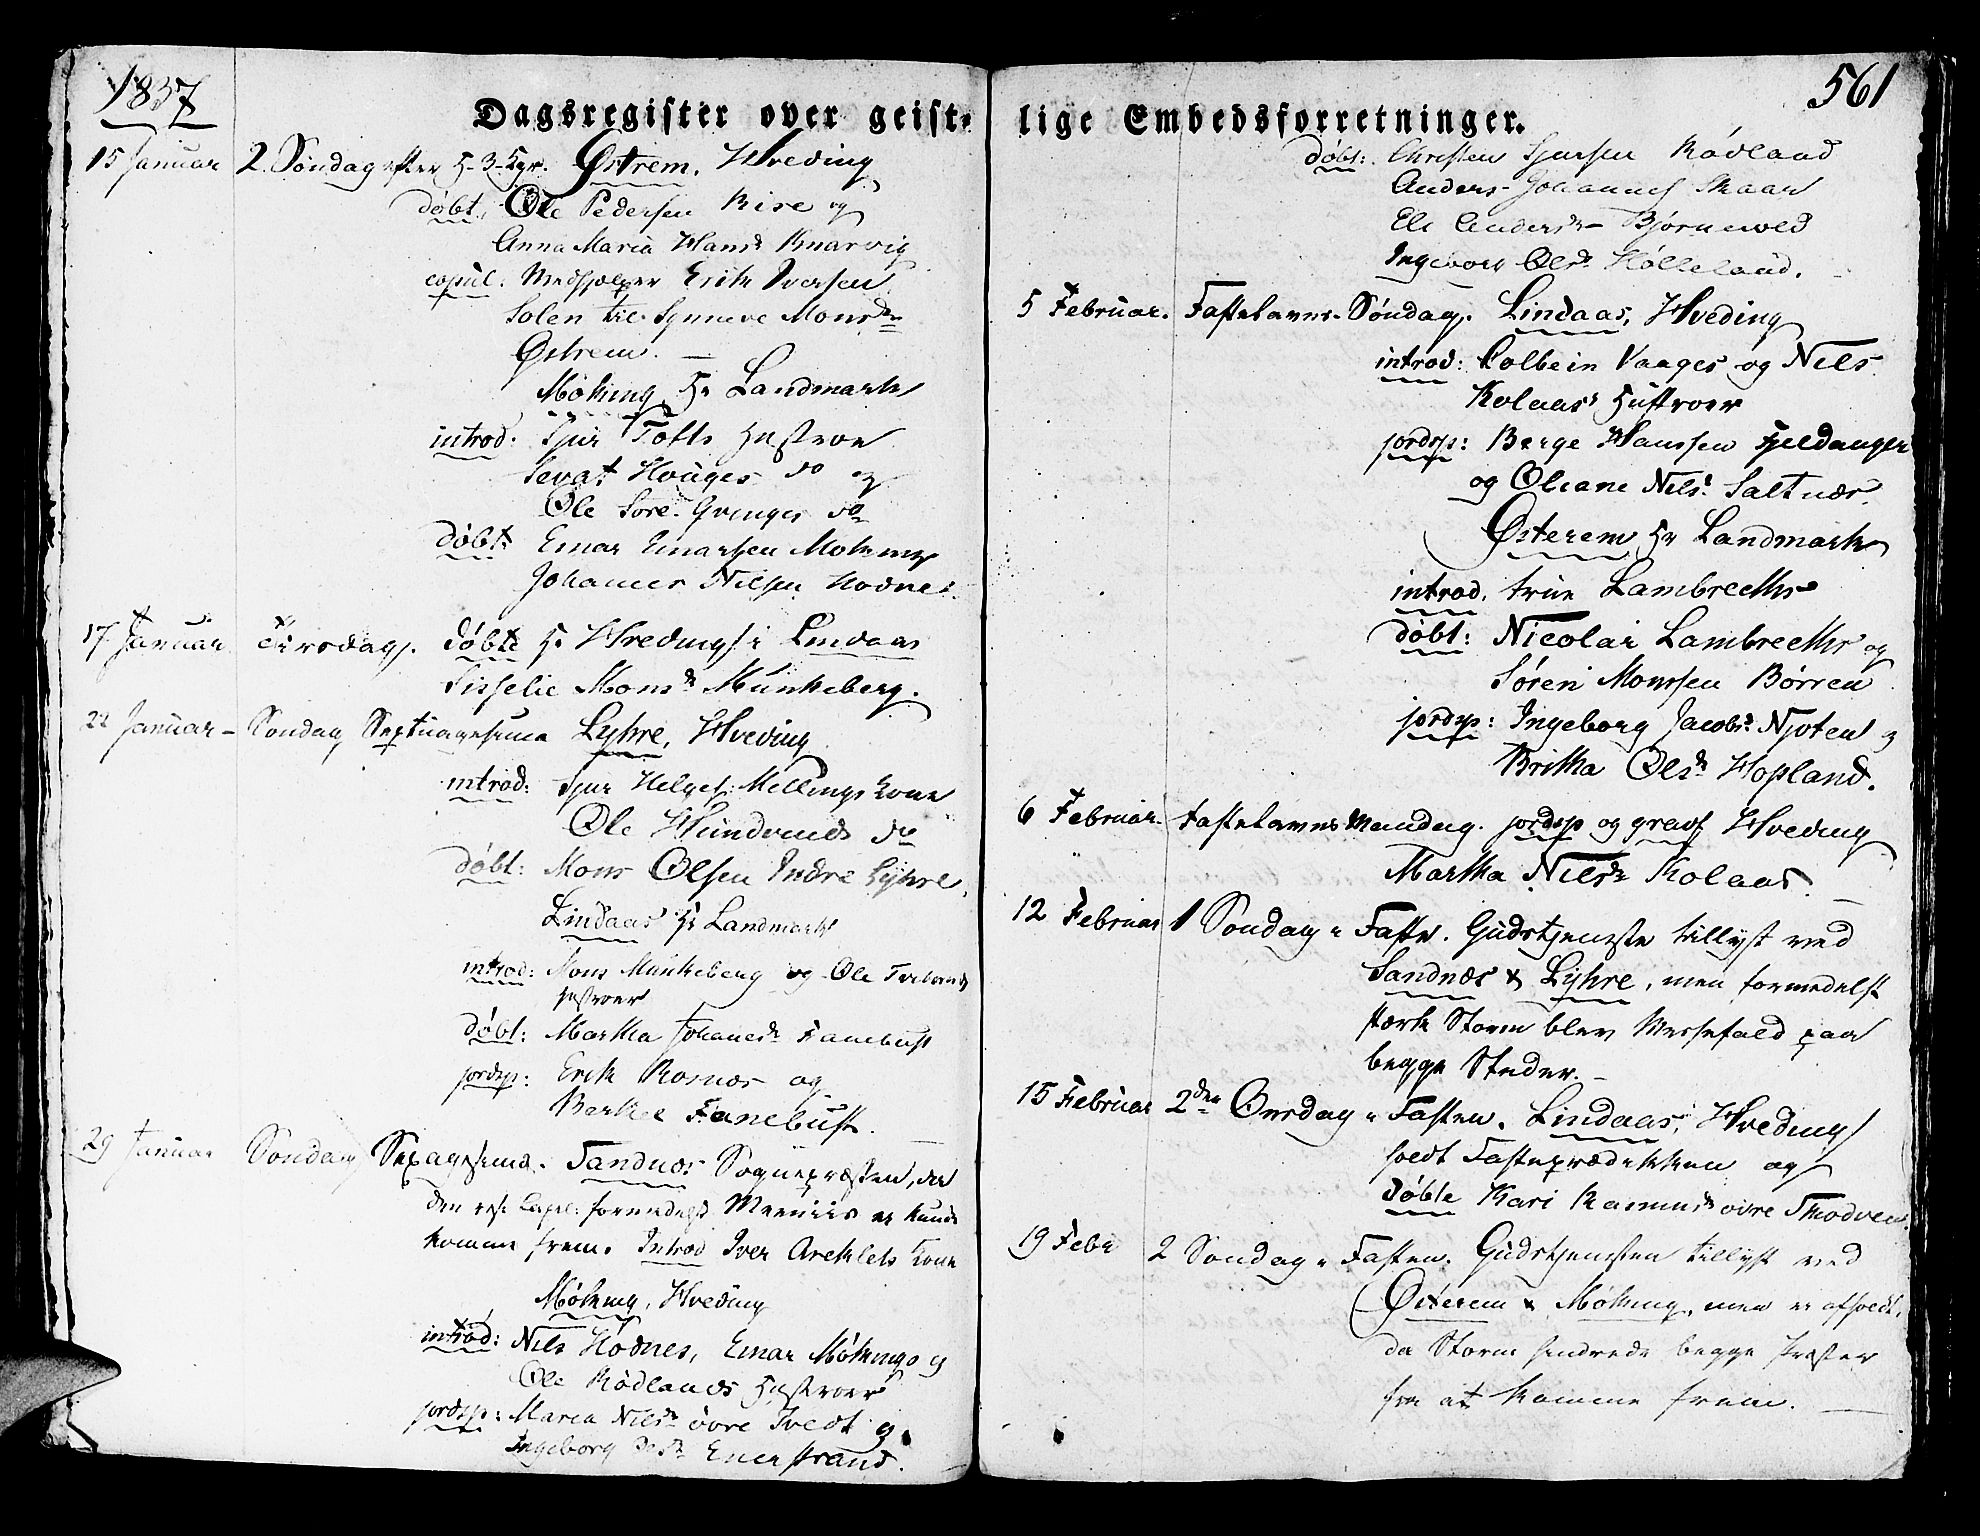 1837
Dagsregister over geist-
15 Januar 2. Søndag efter H. 3 Kgr. Østrem. Hveding
døbt. Ole Pedersen Rise og
Anna Maria Hansd. Knarvig
copul: Medhjælper Erik Iversen
Solen til Synneve Monsdr
Østrem. —
Møking, Hr Landmark
introd. Sjur Tofts Hustroe
Sevat Houges do og
Ole Søre Qvinges do
døbt: Einar Einarsen Møking
Johannes Nilsen Hodne.
17 Januar Tirsdag. døbte Hr Hveding i Lindaas
Sisselie Monsd. Munkeberg.
22 Januar - Søndag Septuagesima Lyhre, Hveding
introd: Sjur Helges. Mellings Kone
Ole Hundvends do
døbt: Mons Olsen Indre Lyhre,
Lindaas Hr Landmark
introd: Mons Munkeberg og Ole
Hustroer
døbt: Martha Johanesdr Fanebust
jordsp: Erik Rosnes og
Berthe Fanebust. —
29 Januar Søndag Sexagesima. Sandnæs Sognepræsten, da
den res. Capel: formedelst Meeniis ei kunde
komme frem. Introd Iver Areklets Kone
Møking, Hveding
introd: Nils Hodnes, Einar Mökings og
Ole Rødlands Hustroer
jordsp: Maren Nilsd. øvre Tvedt og
Ingeborg Enerstrand.
561
lige Embedsforretninger.
døbt: Christen Sjursen Rödland
Anders Johannes. Skaar
Eli Andersdr Björnevold
Ingeborg Olsd. Hølleland. —
5 Februar. Fastelavns-Søndag. Lindaas, Hveding
introd: Colbein Vaages og Nels
Kolaas's Hustroer
jordsp: Berge Hanssen Fjeldanger
og Oleane Nils. Saltnæs
Østerem Hr Landmark
introd. Frue Lambrechts
døbt: Nicolai Lambrechts og
Søren Monssen Børren
jordsp: Ingeborg Jacobsd. Njøten og
Britha Olsdr Hopland.
6 Februar. Fastelavns Mandag. jordsp og grav Hveding
Martha Nilsdr Kolaas
12 Februar 1 Søndag i Faste. Gudstjeneste tillyst ved
Sandnæs & Lyhre, men formedelst
stærk Storm blev Messefald paa
begge Steder. —
15 Februar 2den Onsdag i Fasten. Lindaas, Hveding
holdt Fasteprædikken og
døbte Kari Rasmusdr øvre Skodven.
19 Febr 2 Søndag i Fasten. Gudstjenesten tillyst ved
Østerem & Møking, men ei afholdt,
da Storm hindrede begge Præster
fra at komme frem. —